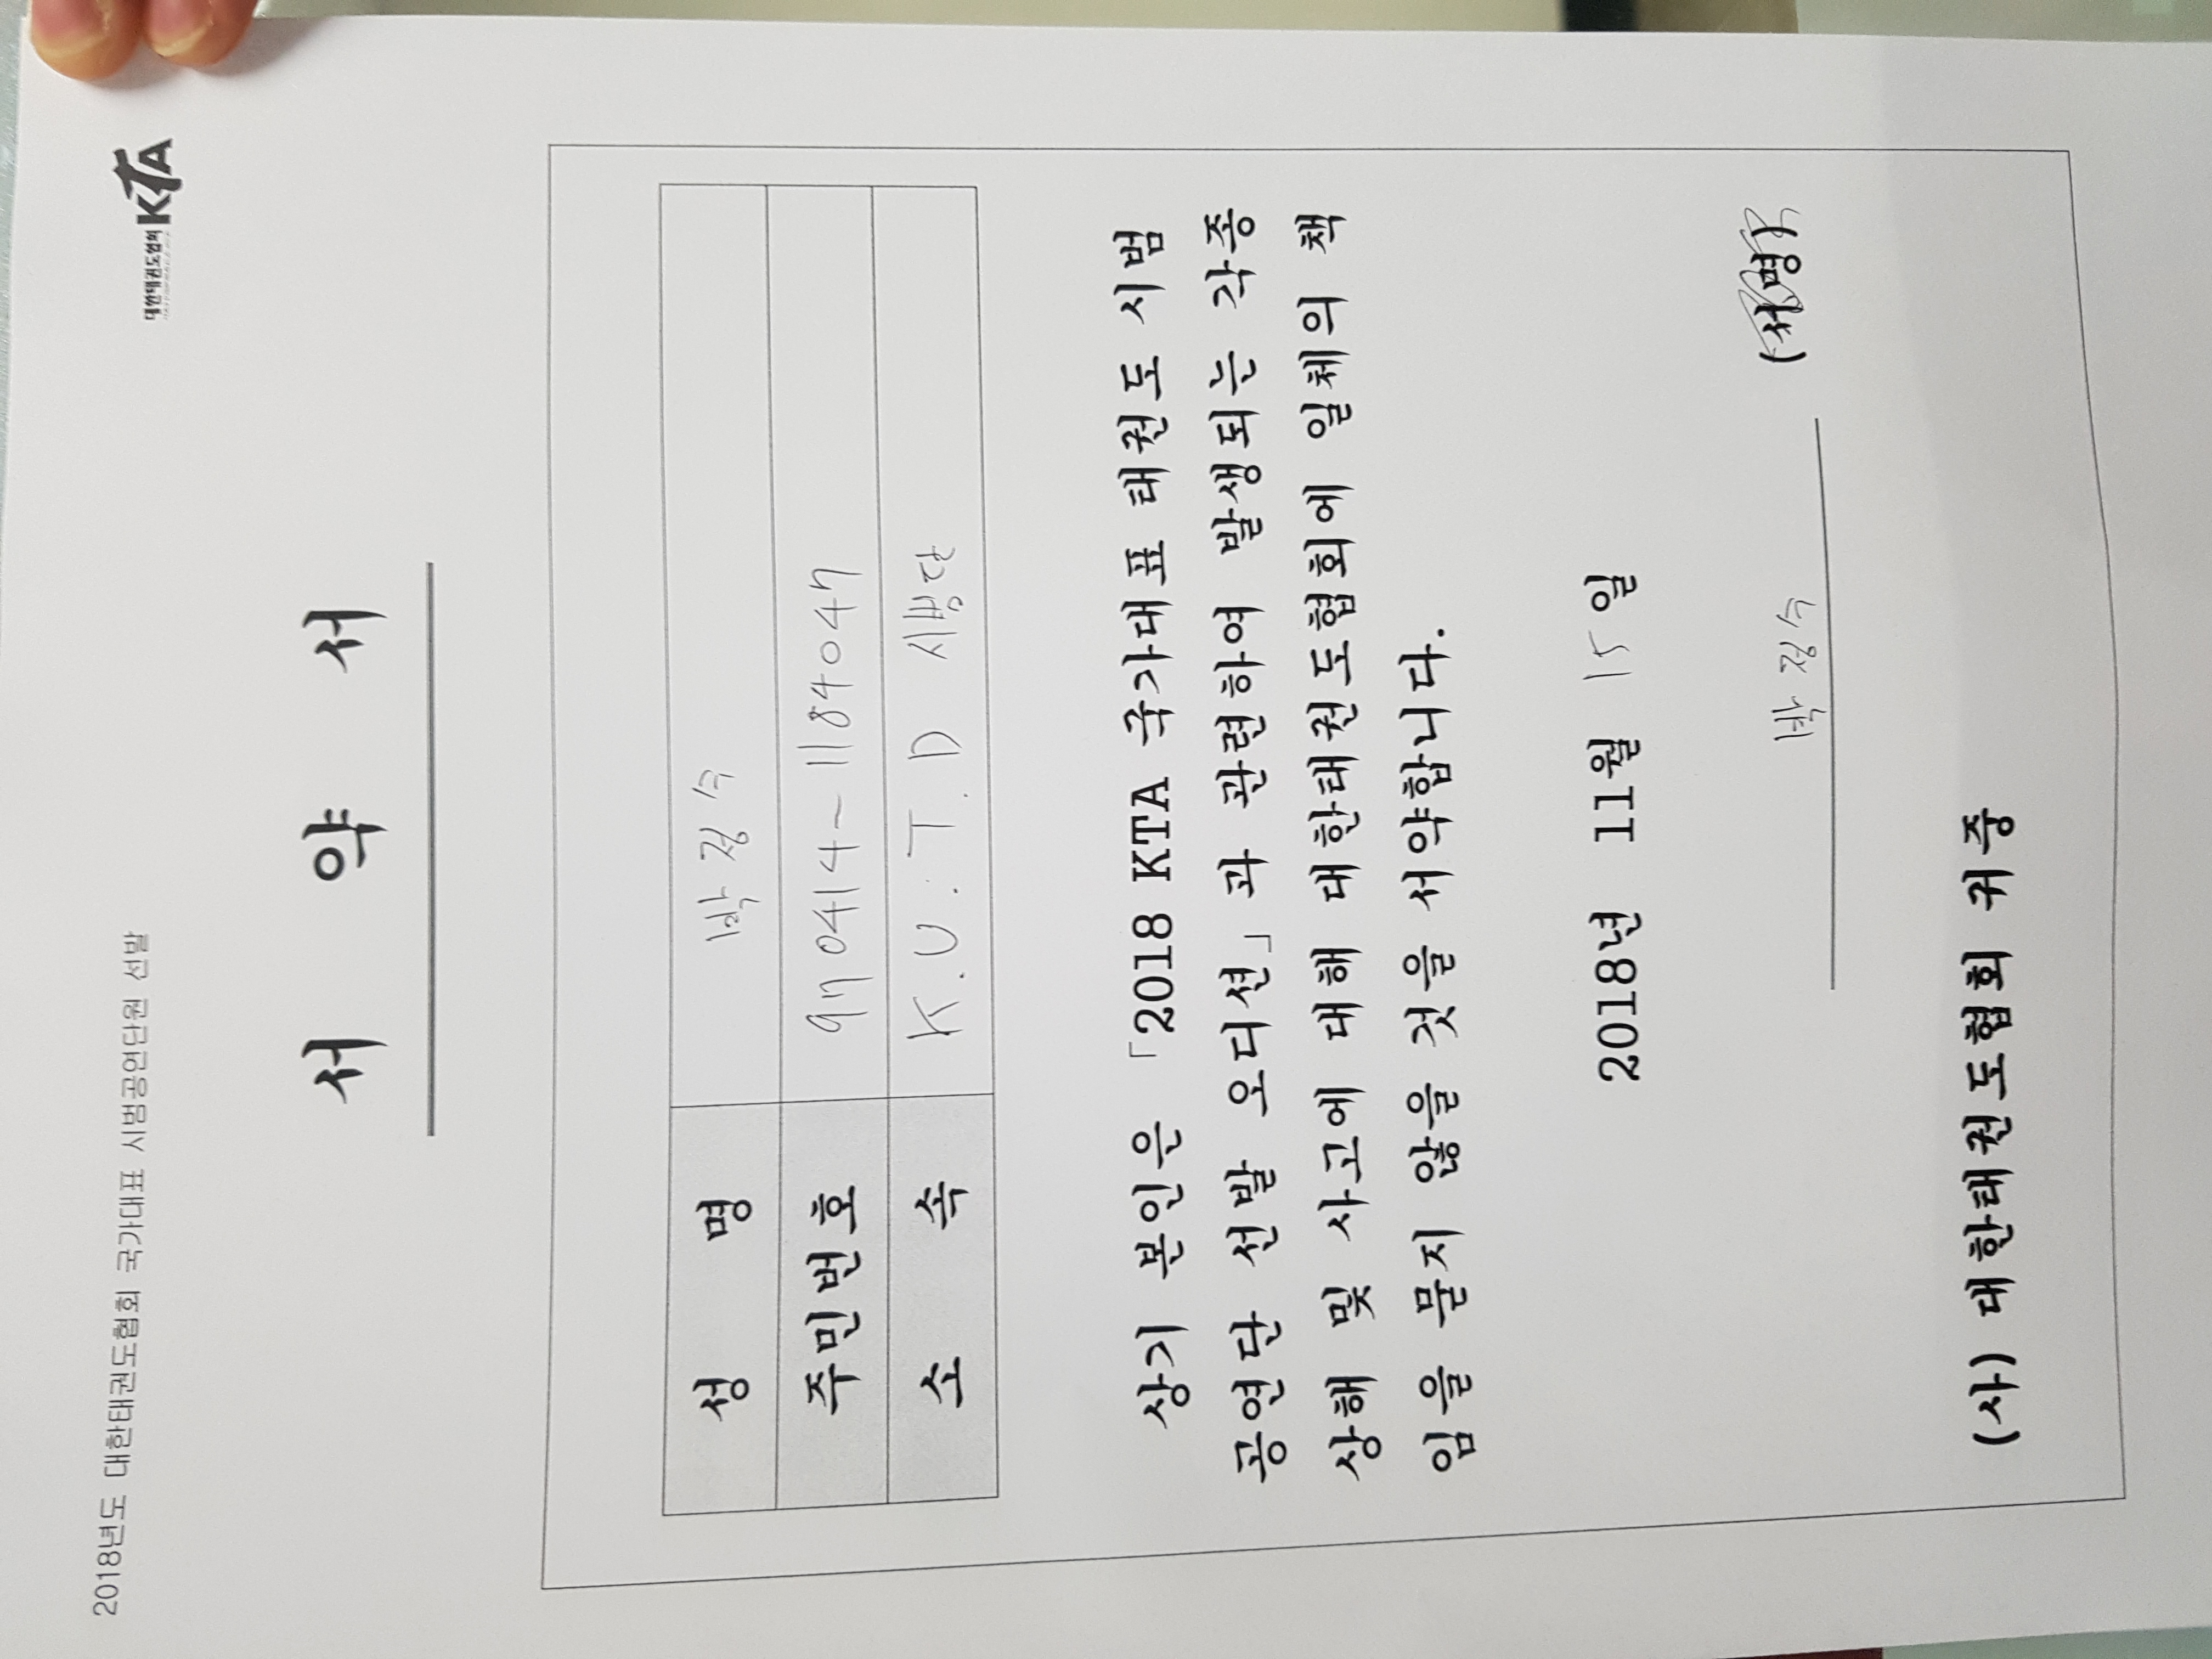 2018년도 대한태권도협회 국가대표 시범공연단원 선발
대한태권도협회 KTA
서 약 서
성 명 박정수
주민번호 970414~1184047
소 속 K.U.T.D 시범단
상기 본인은 「2018 KTA 국가대표 태권도 시범
공연단 선발 오디션」과 관련하여 발생되는 각종
상해 및 사고에 대해 대한태권도협회에 일체의 책
임을 묻지 않을 것을 서약합니다.
2018년 11월 15일
박정수 (서명)
(사) 대한태권도협회 귀중